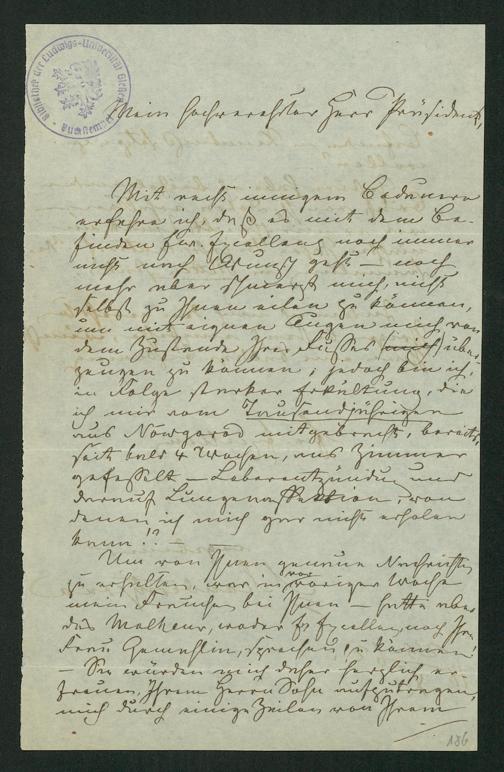 Bibliothek der Ludwigs-Universität Giessen
Mein hochverehrter Herr Präsident,
Mit recht innigem Bedauern
erfahre ich, daß es mit dem Be-
finden Ew. Excellenz noch immer
nicht nach Wunsch geht – noch
mehr aber schmerzt mich, nicht
selbst zu Ihnen eilen zu können,
um mit eignen Augen mich von
dem Zustande Ihres Fußes (mich) über-
zeugen zu können; jedoch bin ich,
in Folge starker Erkältung, die
ich mir vom Tausendjährigen
aus Nowgorod mitgebracht, bereits
seit bald 4 Wochen, ans Zimmer
gefesselt – Leberentzündung und
darauf Lungenaffektion, von
denen ich mich gar nicht erholen
kann!?
Um von Ihnen genaue Nachrichten
zu erhalten, war in vor voriger Woche
mein Frauchen bei Ihnen – hatte aber
das Malheur, weder Ew Excellenz noch Ihre
Frau Gemahlin, sprechen zu können
– Sie würden mich daher herzlich er-
freuen, Ihrem Herrn Sohn aufzutragen,
mich durch einige Zeilen von Ihrem
186